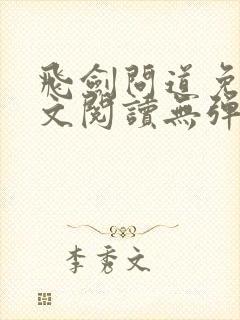 飛劍問道免
文閱讀無彈
李秀文